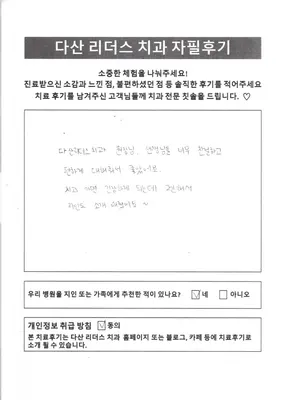 다산 리더스 치과 자필후기
소중한 체험을 나눠주세요!
진료받으신 소감과 느낀 점, 불편하셨던 점 등 솔직한 후기를 적어주세요
치료 후기를 남겨주신 고객님들께 치과 전문 칫솔을 드립니다. ♡
다산리더스치과 원장님, 선생님들 너무 친절하고
편하게 대해줘서 좋았어요.
치과 가면 긴장하게 되는데
우리 병원을 지인 또는 가족에게 추천한 적이 있나요? ☑ 네 □ 아니오
개인정보 취급 방침 ☑ 동의
본 치료후기는 다산 리더스 치과 홈페이지 또는 블로그, 카페 등에 치료후기로
소개 될 수 있습니다.